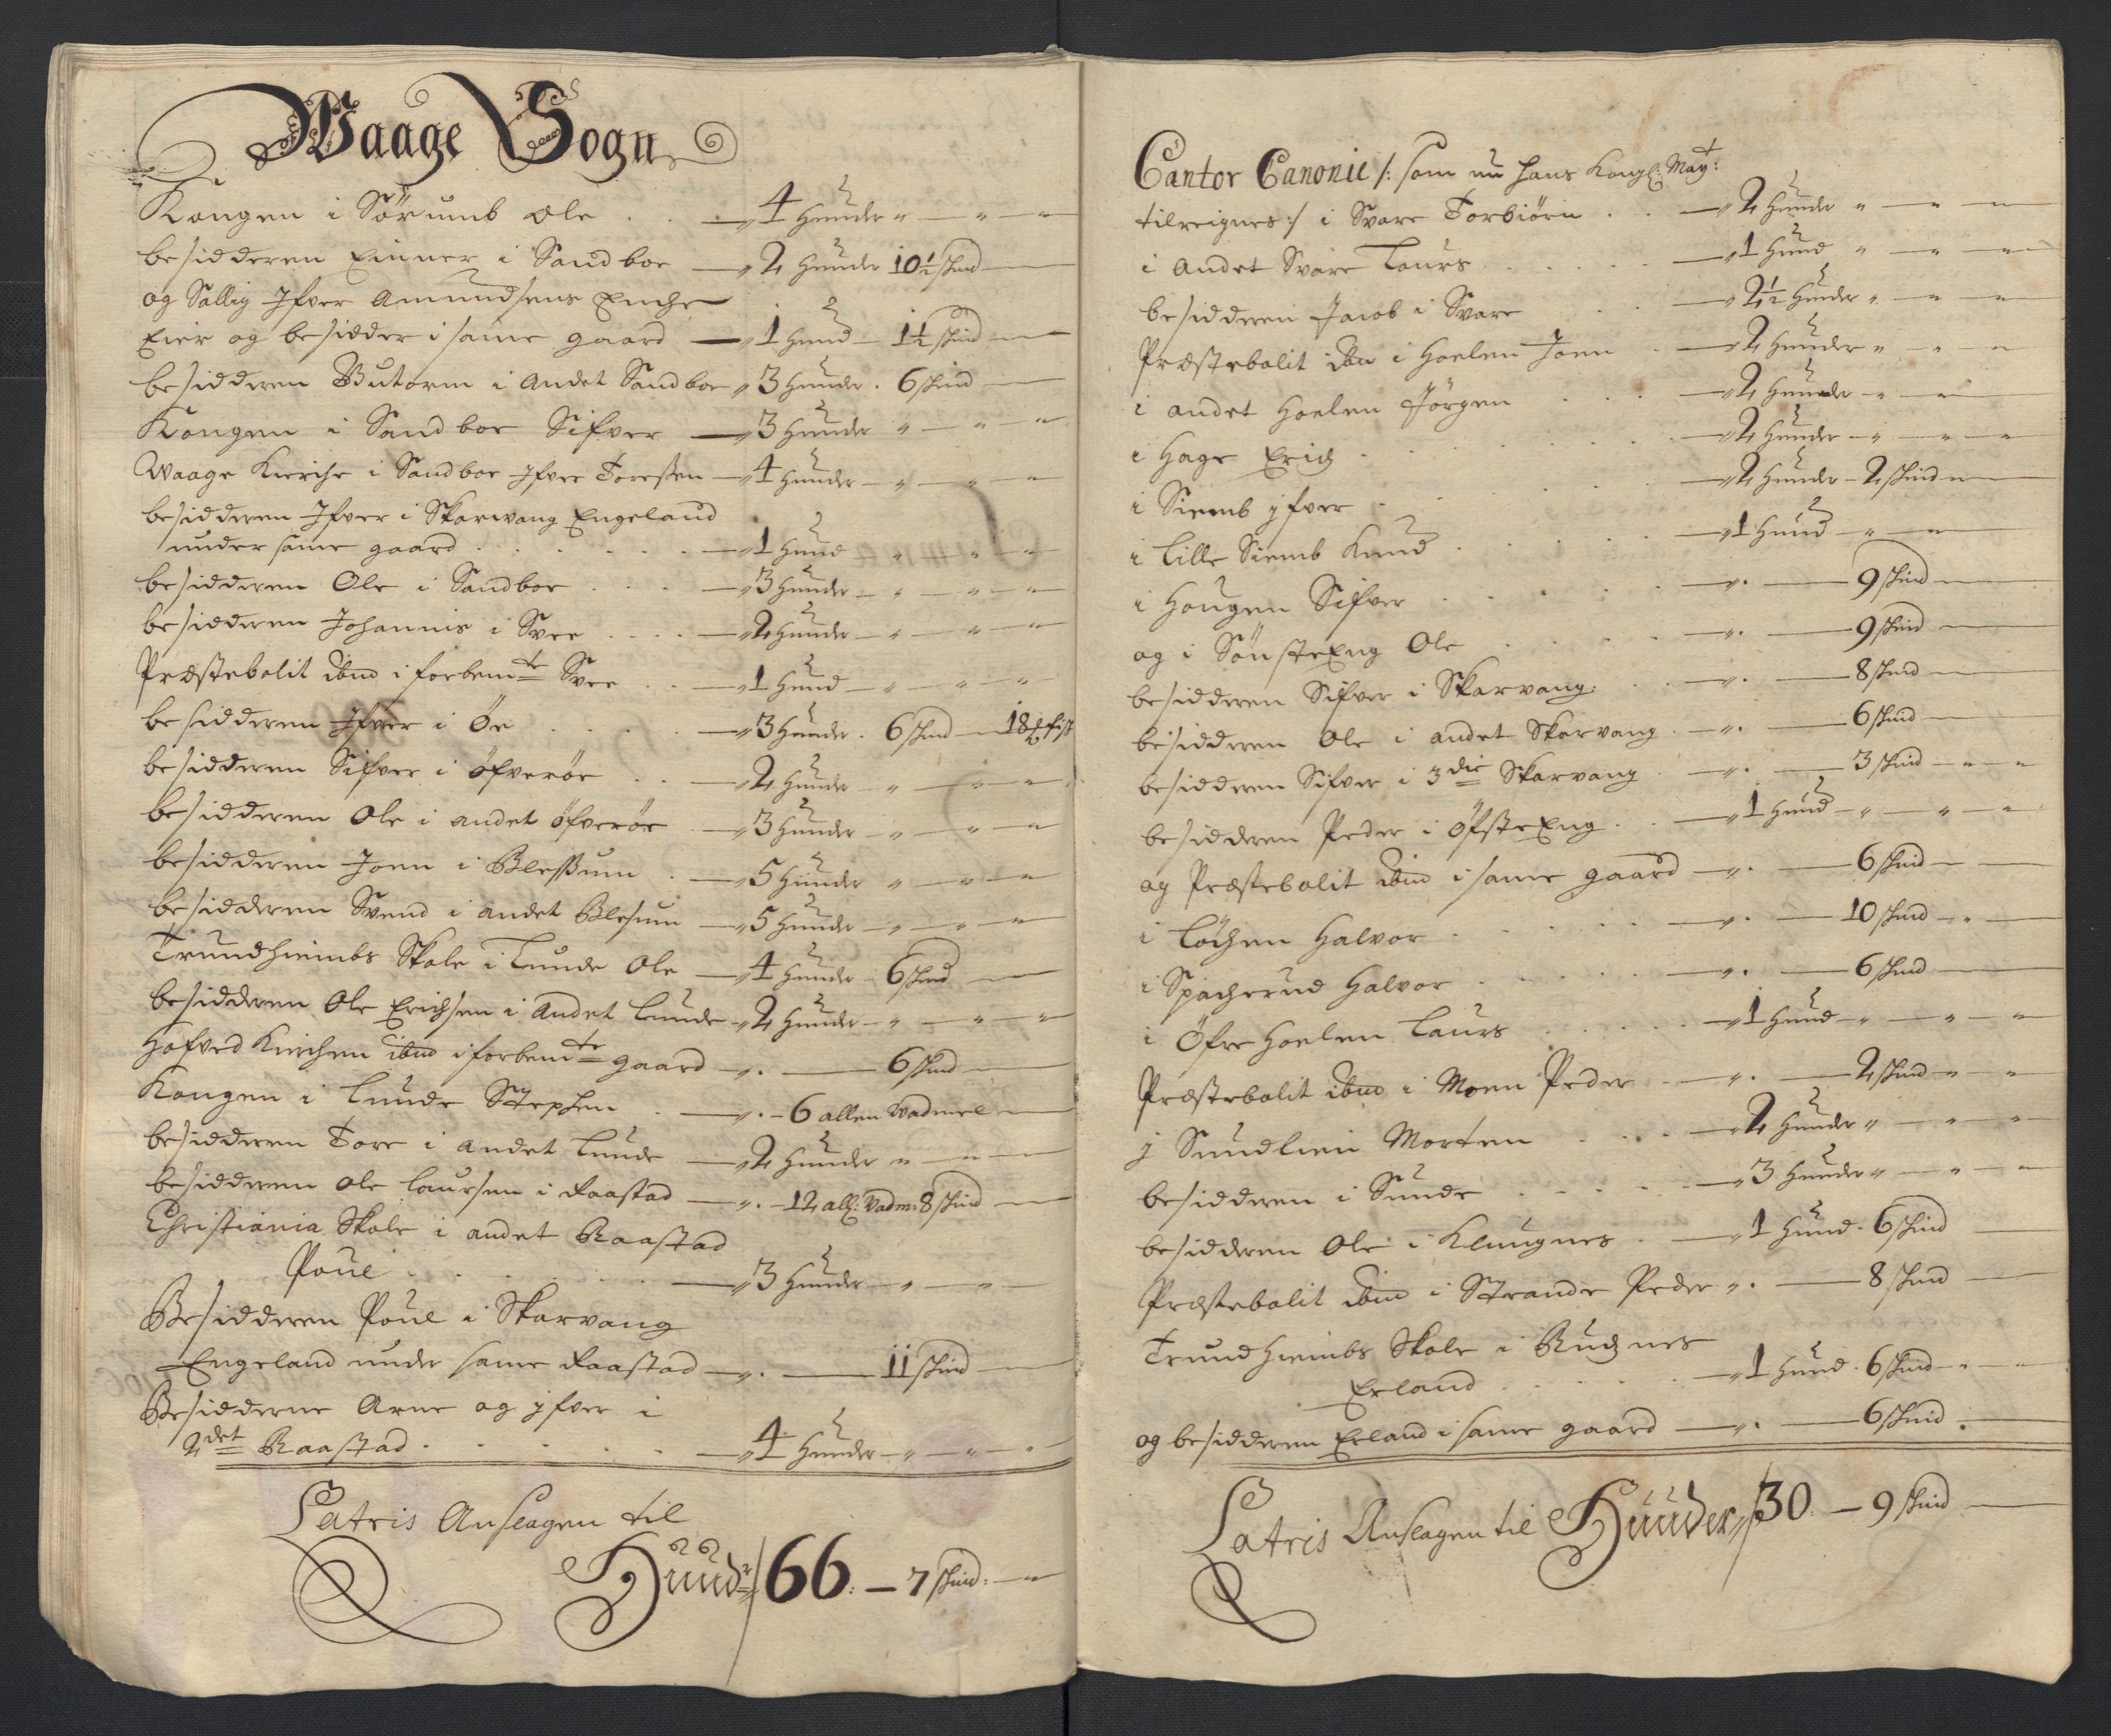 Waage Sogn
Kongen i Sørumb Ole . . — 4 Hunder " — " — "
besidderen Einner i Sandboe — 2 Hunder 10½ skind —
og Sallig Ifver Amundsens Enche
Eier og besidder i same gaard — 1 Hund — 1½ skind —
besidderen Gutorm i Andet Sandboe 3 Hunder . 6 skind —
Kongen i Sandboe Sifver — 3 Hunder " — " — "
Waage Kierche i Sandboe Ifver Toressen — 4 Hunder — " — " — "
besidderen Ifver i Skarvang Engeland
under same gaard . . . . — 1 Hund " — " — "
besidderen Ole i Sandboe . . . — 3 Hunder — " — " — "
besidderen Johannis i Svee . . . — 2 Hunder — " — " — "
Præstebolit ibm i forbemte Svee . . — 1 Hund — " — " — "
besidderen Ifver i Øe . . . . — 3 Hunder . 6 skind — 18 ℔ fisk
besidderen Sifver i Öfverøe . . — 2 Hunder — " — " — "
besidderen Ole i andet öfverøe . — 3 Hunder — " — " — "
besidderen Joen i Blessum . — 5 Hunder " — " — "
besidderen Svend i andet Blesum — 5 Hunder — " — " — "
Trundhiembs Skole i Lunde Ole — 4 Hunder — 6 skind —
besidderen Ole Erichsen i Andet Lunde — 2 Hunder — " — " — "
Hofved Kirchen ibm i forbemte gaard — " . — 6 skind —
Kongen i Lunde Stephen . — " . — 6 allen Vadmel —
besidderen Tore i andet Lunde — 2 Hunder " — " —
besidderen Ole Laursen i Raastad — " . — 12 all: Vadm: 8 skind —
Christiania Skole i andet Raastad
Poul . . . . . — 3 Hunder — " — " —
Besidderen Poul i Skarvang
Engeland under same Raastad — " . — 11 skind —
Besidderne Arne og Ifver i
2det Raastad . . . . . — 4 Hunder — " — " — "
Latris Anslagen til
Hundr 66. — 7 skind. — "
Cantor Canonie /: som nu hans Kongl: Mayt:
tilreignes :/ i Svare Torbiörn . . — 2 Hunder " — " — "
i Andet Svare Laurs . . . . — 1 Hund " — " — "
besidderen Jacob i Svare . . — 2½ Hunder " — " — "
Præstebolit ibm i Hoelen Joen . — 2 Hunder " — " — "
i andet Hoelen Jörgen . . . — 2 Hunder — " — "
i Hage Erich . . . . . — 2 Hunder — " — " — "
i Siemb Ifver . . . . . — 2 Hunder — 2 skind — "
i Lille Siemb Knud . . . . — 1 Hund — " — "
i Hougen Sifver . . . . . — " . — 9 skind —
og i SönsteEng Ole . . . . — " . — 9 skind —
besidderen Sifver i Skarvang . . — " . — 8 skind —
besidderen Ole i andet Skarvang . — " . — 6 skind —
besidderen Sifver i 3die Skarvang . — " . — 3 skind — " — "
besidderen Peder i ÖfsteEng . . — 1 Hund — " — " — "
og Præstebolit ibm i same gaard — " . — 6 skind —
i Löchen Halvor . . . . . — " . — 10 skind — " —
i Spacherud Halvor . . . . — " . — 6 skind —
i Öfre Hoelen Laurs . . . . — 1 Hund — " — " — "
Præstebolit ibm i Moen Peder . — " . — 2 skind — " — "
j Sundlien Morten . . . — 2 Hunder " — " — "
besidderen i Sunde . . . . — 3 Hunder " — " — "
besidderen Ole i Klungnes . — 1 Hund . 6 skind —
Præstebolit ibm i Strande Peder " . — 8 skind —
Trundhiembs Skole i Rugnes
Erland . . . . . — 1 Hund . 6 skind — " — "
og besidderen Erland i same gaard — " . — 6 skind . —
Latris Anslagen til Hunder 30. — 9 skind —